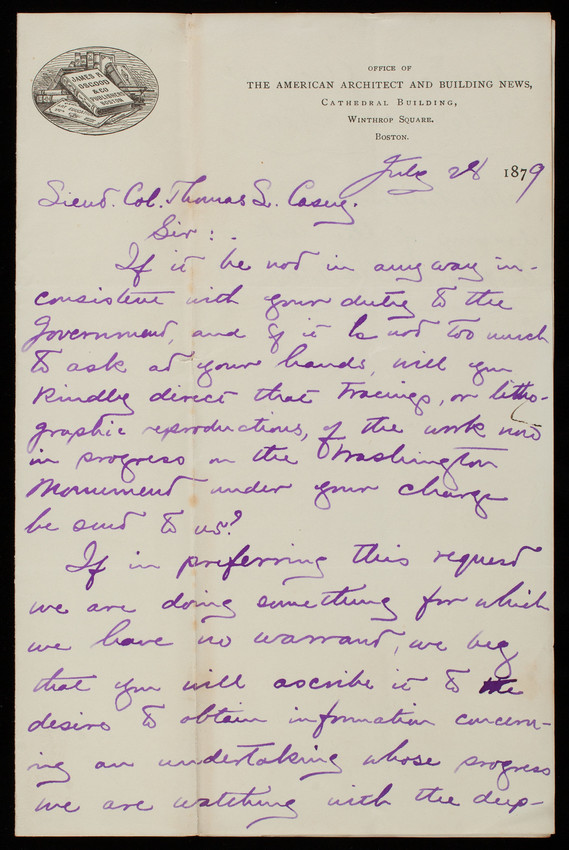 JAMES R.
OSGOOD
& CO
PUBLISHERS
BOSTON
OFFICE OF
THE AMERICAN ARCHITECT AND BUILDING NEWS,
CATHEDRAL BUILDING,
WINTHROP SQUARE.
BOSTON.
July 28 1879
Lieut. Col. Thomas L. Casey.
Sir:.
If it be not in any way in-
consistent with your duty to the
Government, and if it is not too much
to ask at your hands, will you
kindly direct that tracings, or litho-
graphic reproductions, of the work now
in progress on the Washington
Monument under your charge
be sent to us?
If in preferring this request
we are doing something for which
we have no warrant, we beg
that you will ascribe it to the
desire to obtain information concern-
ing an undertaking whose progress
we are watching with the deep-